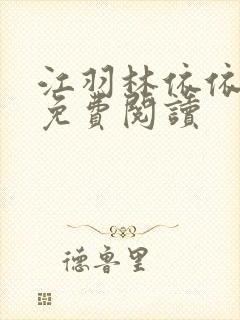 江羽林依依
免費閱讀
德魯里